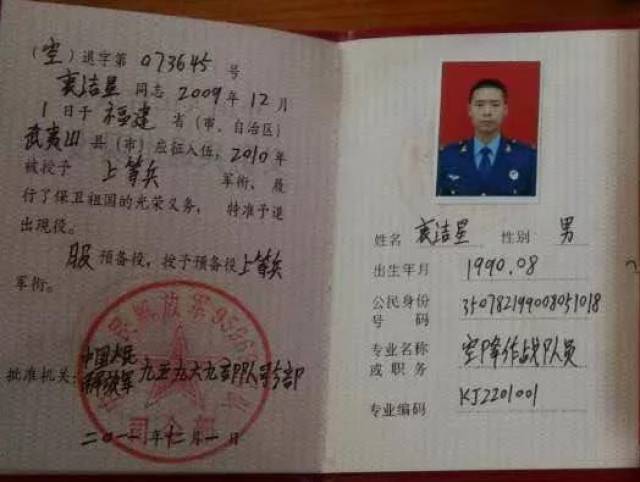 （空）退字第 073645 号
袁洁星 同志 2009 年 12 月
1 日于 福建 省（市、自治区）
武夷山 县（市）应征入伍，2010 年
被授予 上等兵 军衔，履
行了保卫祖国的光荣义务，特准予退
出现役。
服 预备役，授予预备役 上等兵
军衔。
批准机关：
中国人民
解放军 九五九六九部队司令部
二〇一一年十二月一日
司令部
姓名 袁洁星 性别 男
出生年月 1990.08
公民身份
号码 350782199008051018
专业名称
或职务 空降作战队员
专业编码 KJ2201001